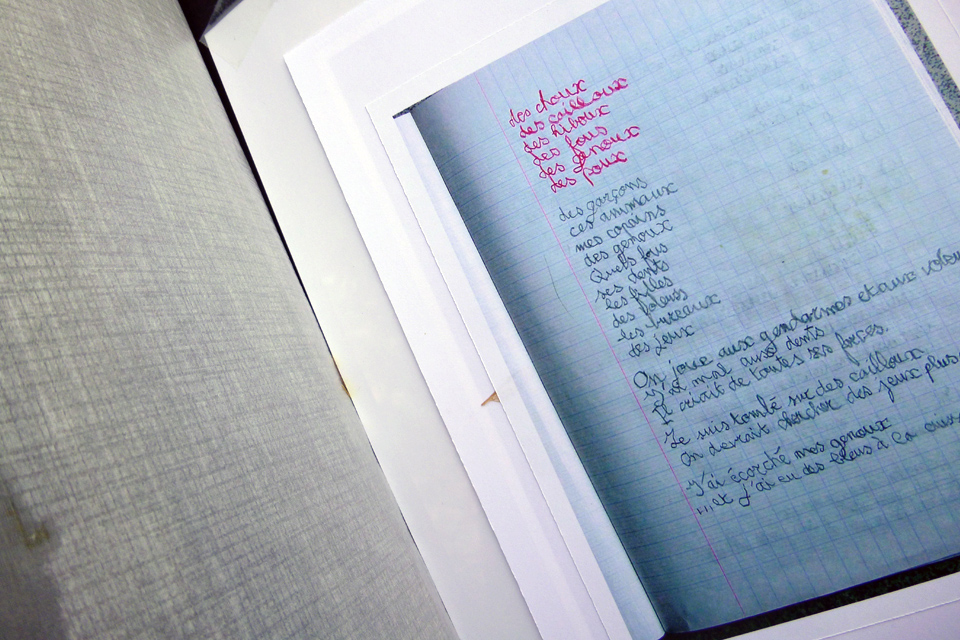 des choux
des cailloux
des hiboux
des fous
des genoux
des poux
des garçons
ces animaux
mes copains
des genoux
Quels fous
ses dents
les filles
des
les bureaux
des jeux
On joue aux gendarmes et aux
mal aux dents
Il criait de toutes ses forces.
Je suis tombé sur des cailloux
On devrait chercher des jeux plus
J'ai écorché mes genoux
... et j'ai eu des bleus à